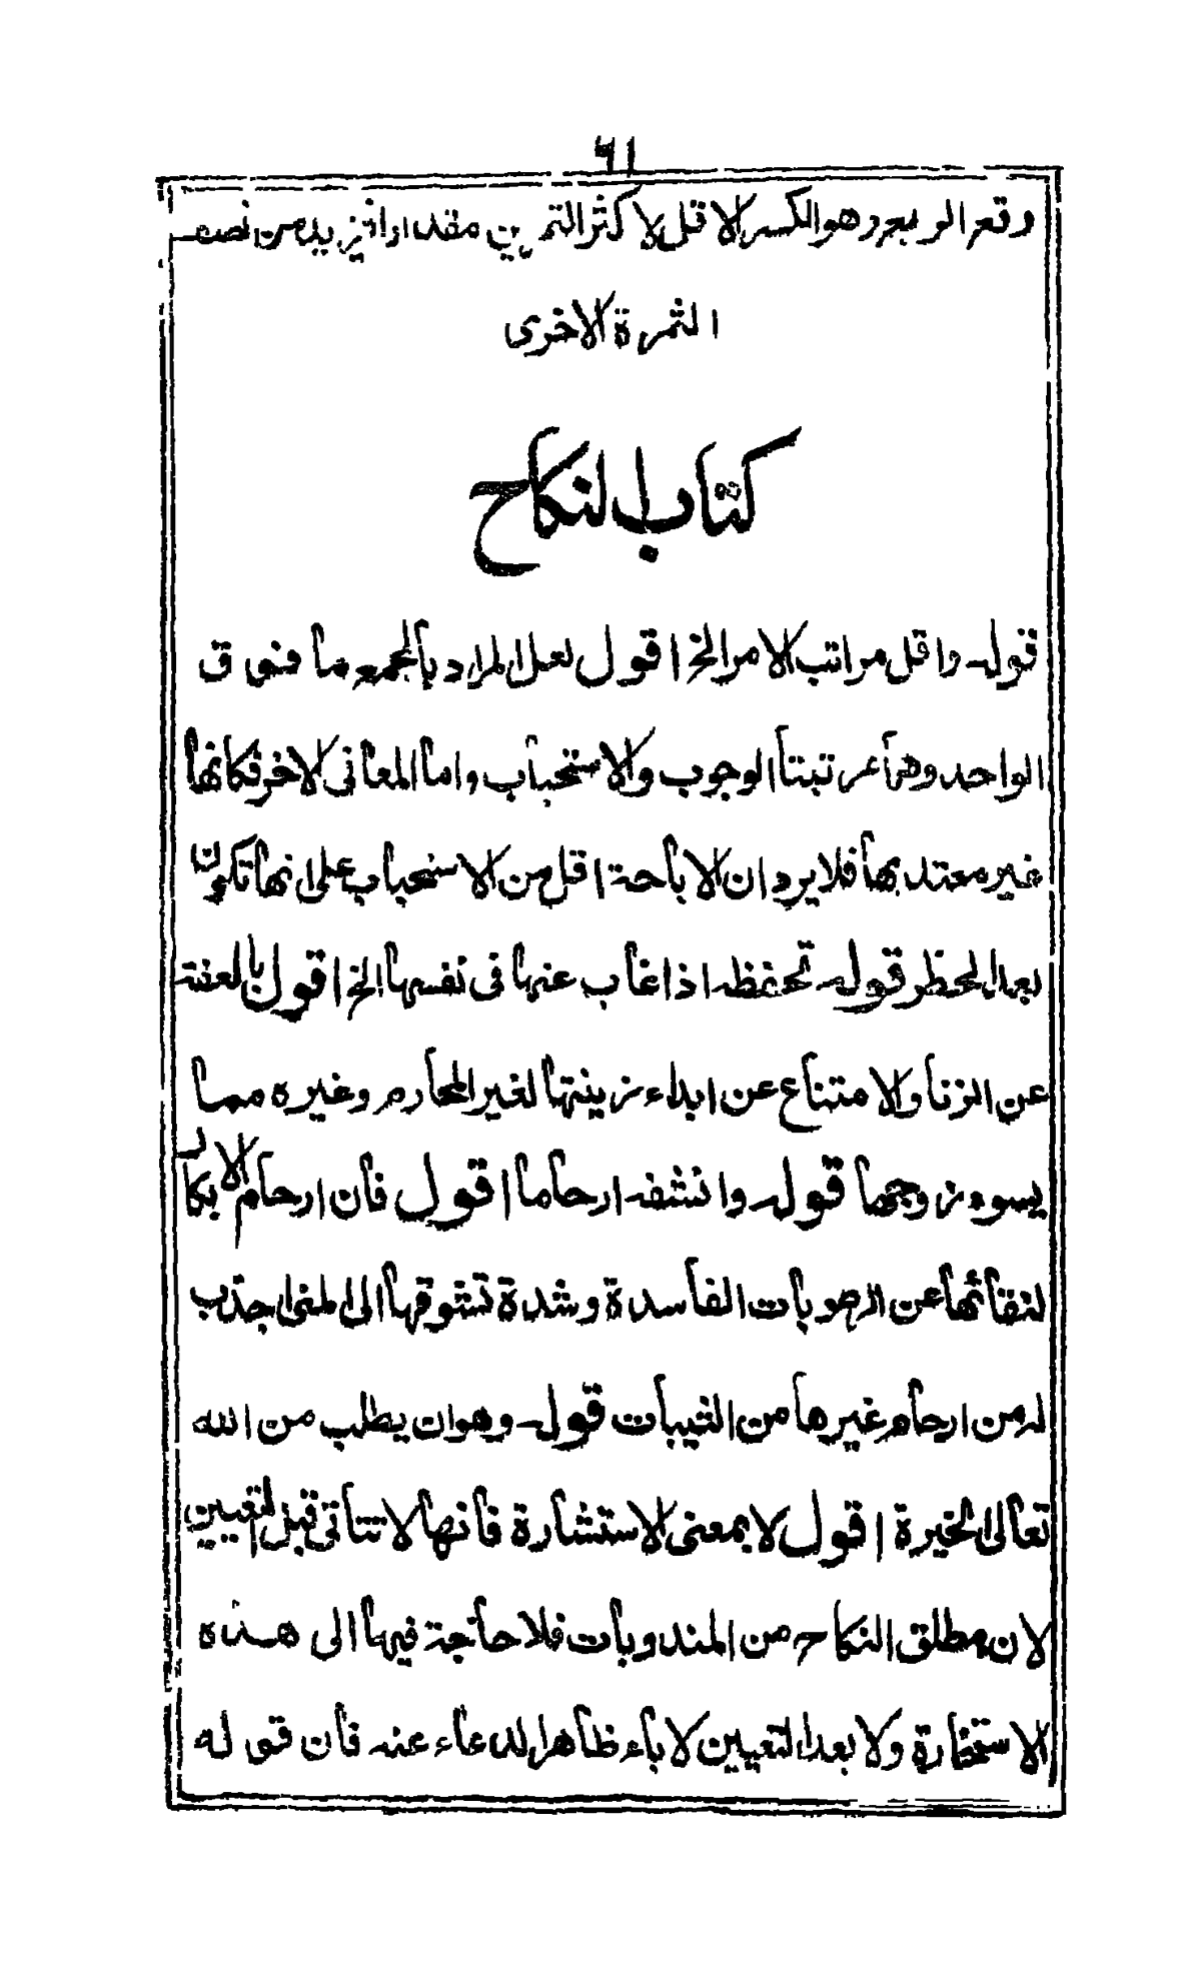 ٦١
وقع الربع وهو الكسر الاقل لاكثر الثمرتين مقدارا نزيد من نصف
الثمرة الاخرى
كتاب النكاح
قوله واقل مراتب الامر الخ اقول لعل المراد بالجمع ما فوق
الواحد وهما مرتبتا الوجوب والاستحباب واما المعانى الاخر فكانها
غير معتد بها فلا يرد ان الاباحة اقل من الاستحباب على انها تكون
بعد الحظر قوله تحفظه اذا غاب عنها فى نفسها الخ اقول بالعفة
عن الزنا والامتناع عن ابداء زينتها لغير المحارم وغيره مما
يسوء زوجها قوله وانشفه ارحاما اقول فان ارحام الابكار
لنقائها عن الرطوبات الفاسدة وشدة تشوقها الى المنى اجذب
له من ارحام غيرها من الثيبات قوله وهو ان يطلب من الله
تعالى الخيرة اقول لا بمعنى الاستشارة فانها لا تتأتى قبل التعيين
لان مطلق النكاح من المندوبات فلا حاجة فيها الى هذه
الاستخارة ولا بعد التعيين لاباء ظاهر الدعاء عنه فان قوله